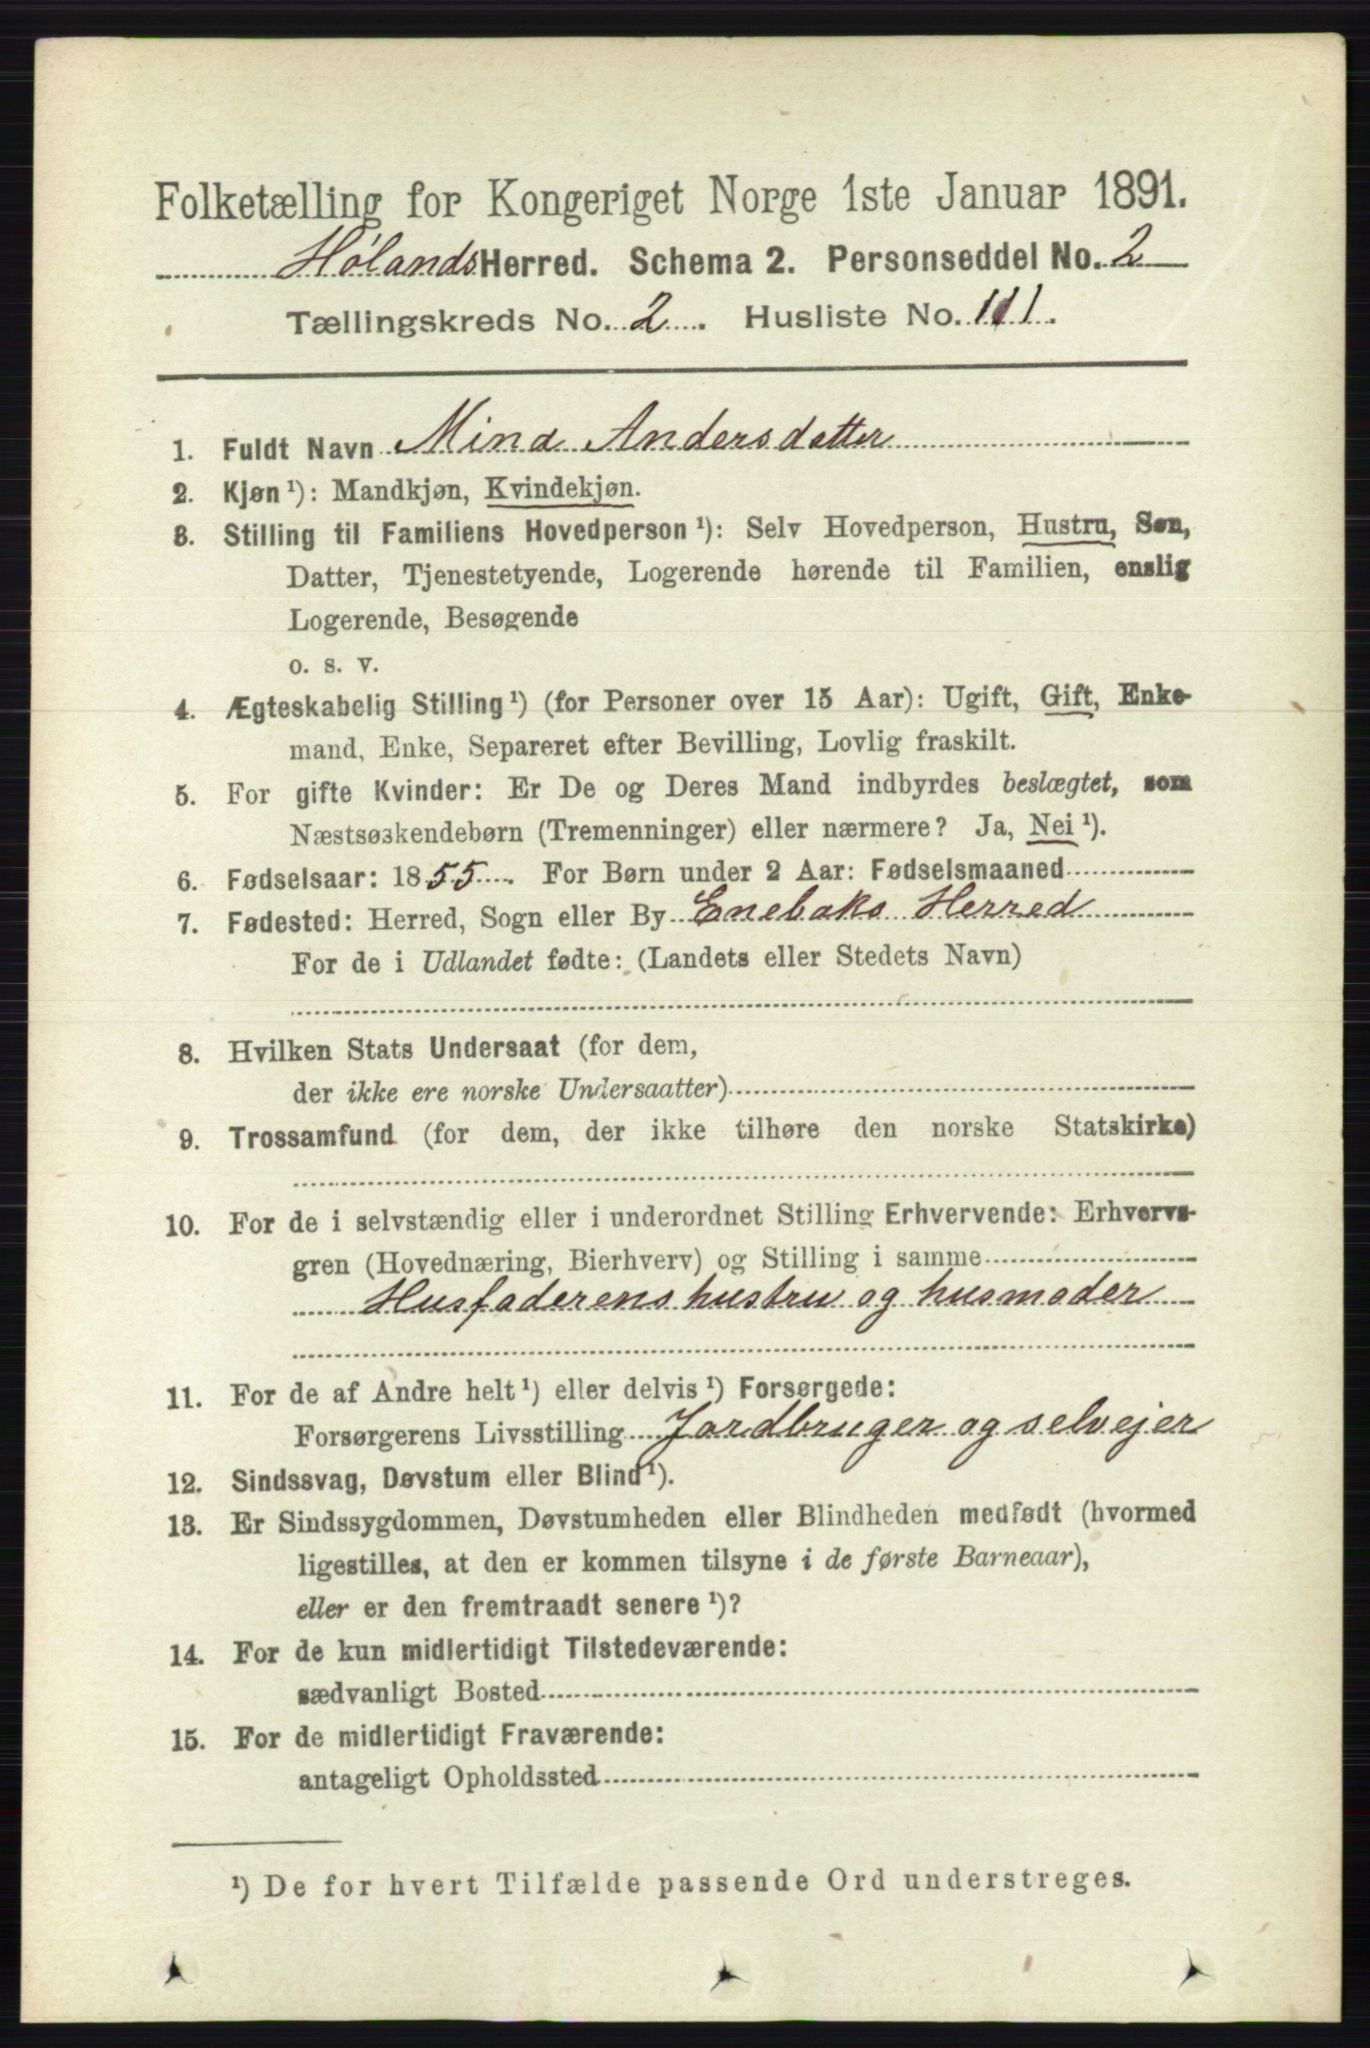 Folketælling for Kongeriget Norge 1ste Januar 1891.
Hølands Herred. Schema 2. Personseddel No. 2
Tællingskreds No. 2. Husliste No. 111.
1. Fuldt Navn Mina Andersdatter
2. Kjøn ¹): Mandkjøn, Kvindekjøn.
3. Stilling til Familiens Hovedperson ¹): Selv Hovedperson, Hustru, Søn,
Datter, Tjenestetyende, Logerende hørende til Familien, enslig
Logerende, Besøgende
o. s. v.
4. Ægteskabelig Stilling ¹) (for Personer over 15 Aar): Ugift, Gift, Enke-
mand, Enke, Separeret efter Bevilling, Lovlig fraskilt.
5. For gifte Kvinder: Er De og Deres Mand indbyrdes beslægtet, som
Næstsøskendebørn (Tremenninger) eller nærmere? Ja, Nei ¹).
6. Fødselsaar: 1855. For Børn under 2 Aar: Fødselsmaaned
7. Fødested: Herred, Sogn eller By Enebaks Herred
For de i Udlandet fødte: (Landets eller Stedets Navn)
8. Hvilken Stats Undersaat (for dem,
der ikke ere norske Undersaatter)
9. Trossamfund (for dem, der ikke tilhøre den norske Statskirke)
10. For de i selvstændig eller i underordnet Stilling Erhvervende: Erhvervs-
gren (Hovednæring, Bierhverv) og Stilling i samme
Husfaderens hustru og husmoder
11. For de af Andre helt ¹) eller delvis ¹) Forsørgede:
Forsørgerens Livsstilling Jordbruger og selvejer
12. Sindssvag, Døvstum eller Blind ¹).
13. Er Sindssygdommen, Døvstumheden eller Blindheden medfødt (hvormed
ligestilles, at den er kommen tilsyne i de første Barneaar),
eller er den fremtraadt senere ¹)?
14. For de kun midlertidigt Tilstedeværende:
sædvanligt Bosted
15. For de midlertidigt Fraværende:
antageligt Opholdssted
¹) De for hvert Tilfælde passende Ord understreges.